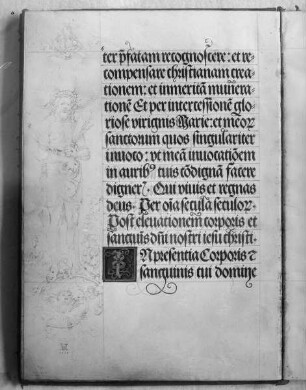 ter p̄fatam recognoscere: et re-
compensare christianam crea-
tionem: et inmeritā munera-
tionē Et per intercessionē glo-
riose virginis Marie: et meor̄
sanctorum quos singulariter
inuoco: vt meā inuocatiōem
in aurib⁹ tuis cōdignā facere
digner̄. Qui viuis et regnas
deus. Per oīa secula seculor̄.
Post eleuationem corporis et
sanguīs dn̄i nostri iesu christi.
IN presentia Corporis ⁊
sanguinis tui domine